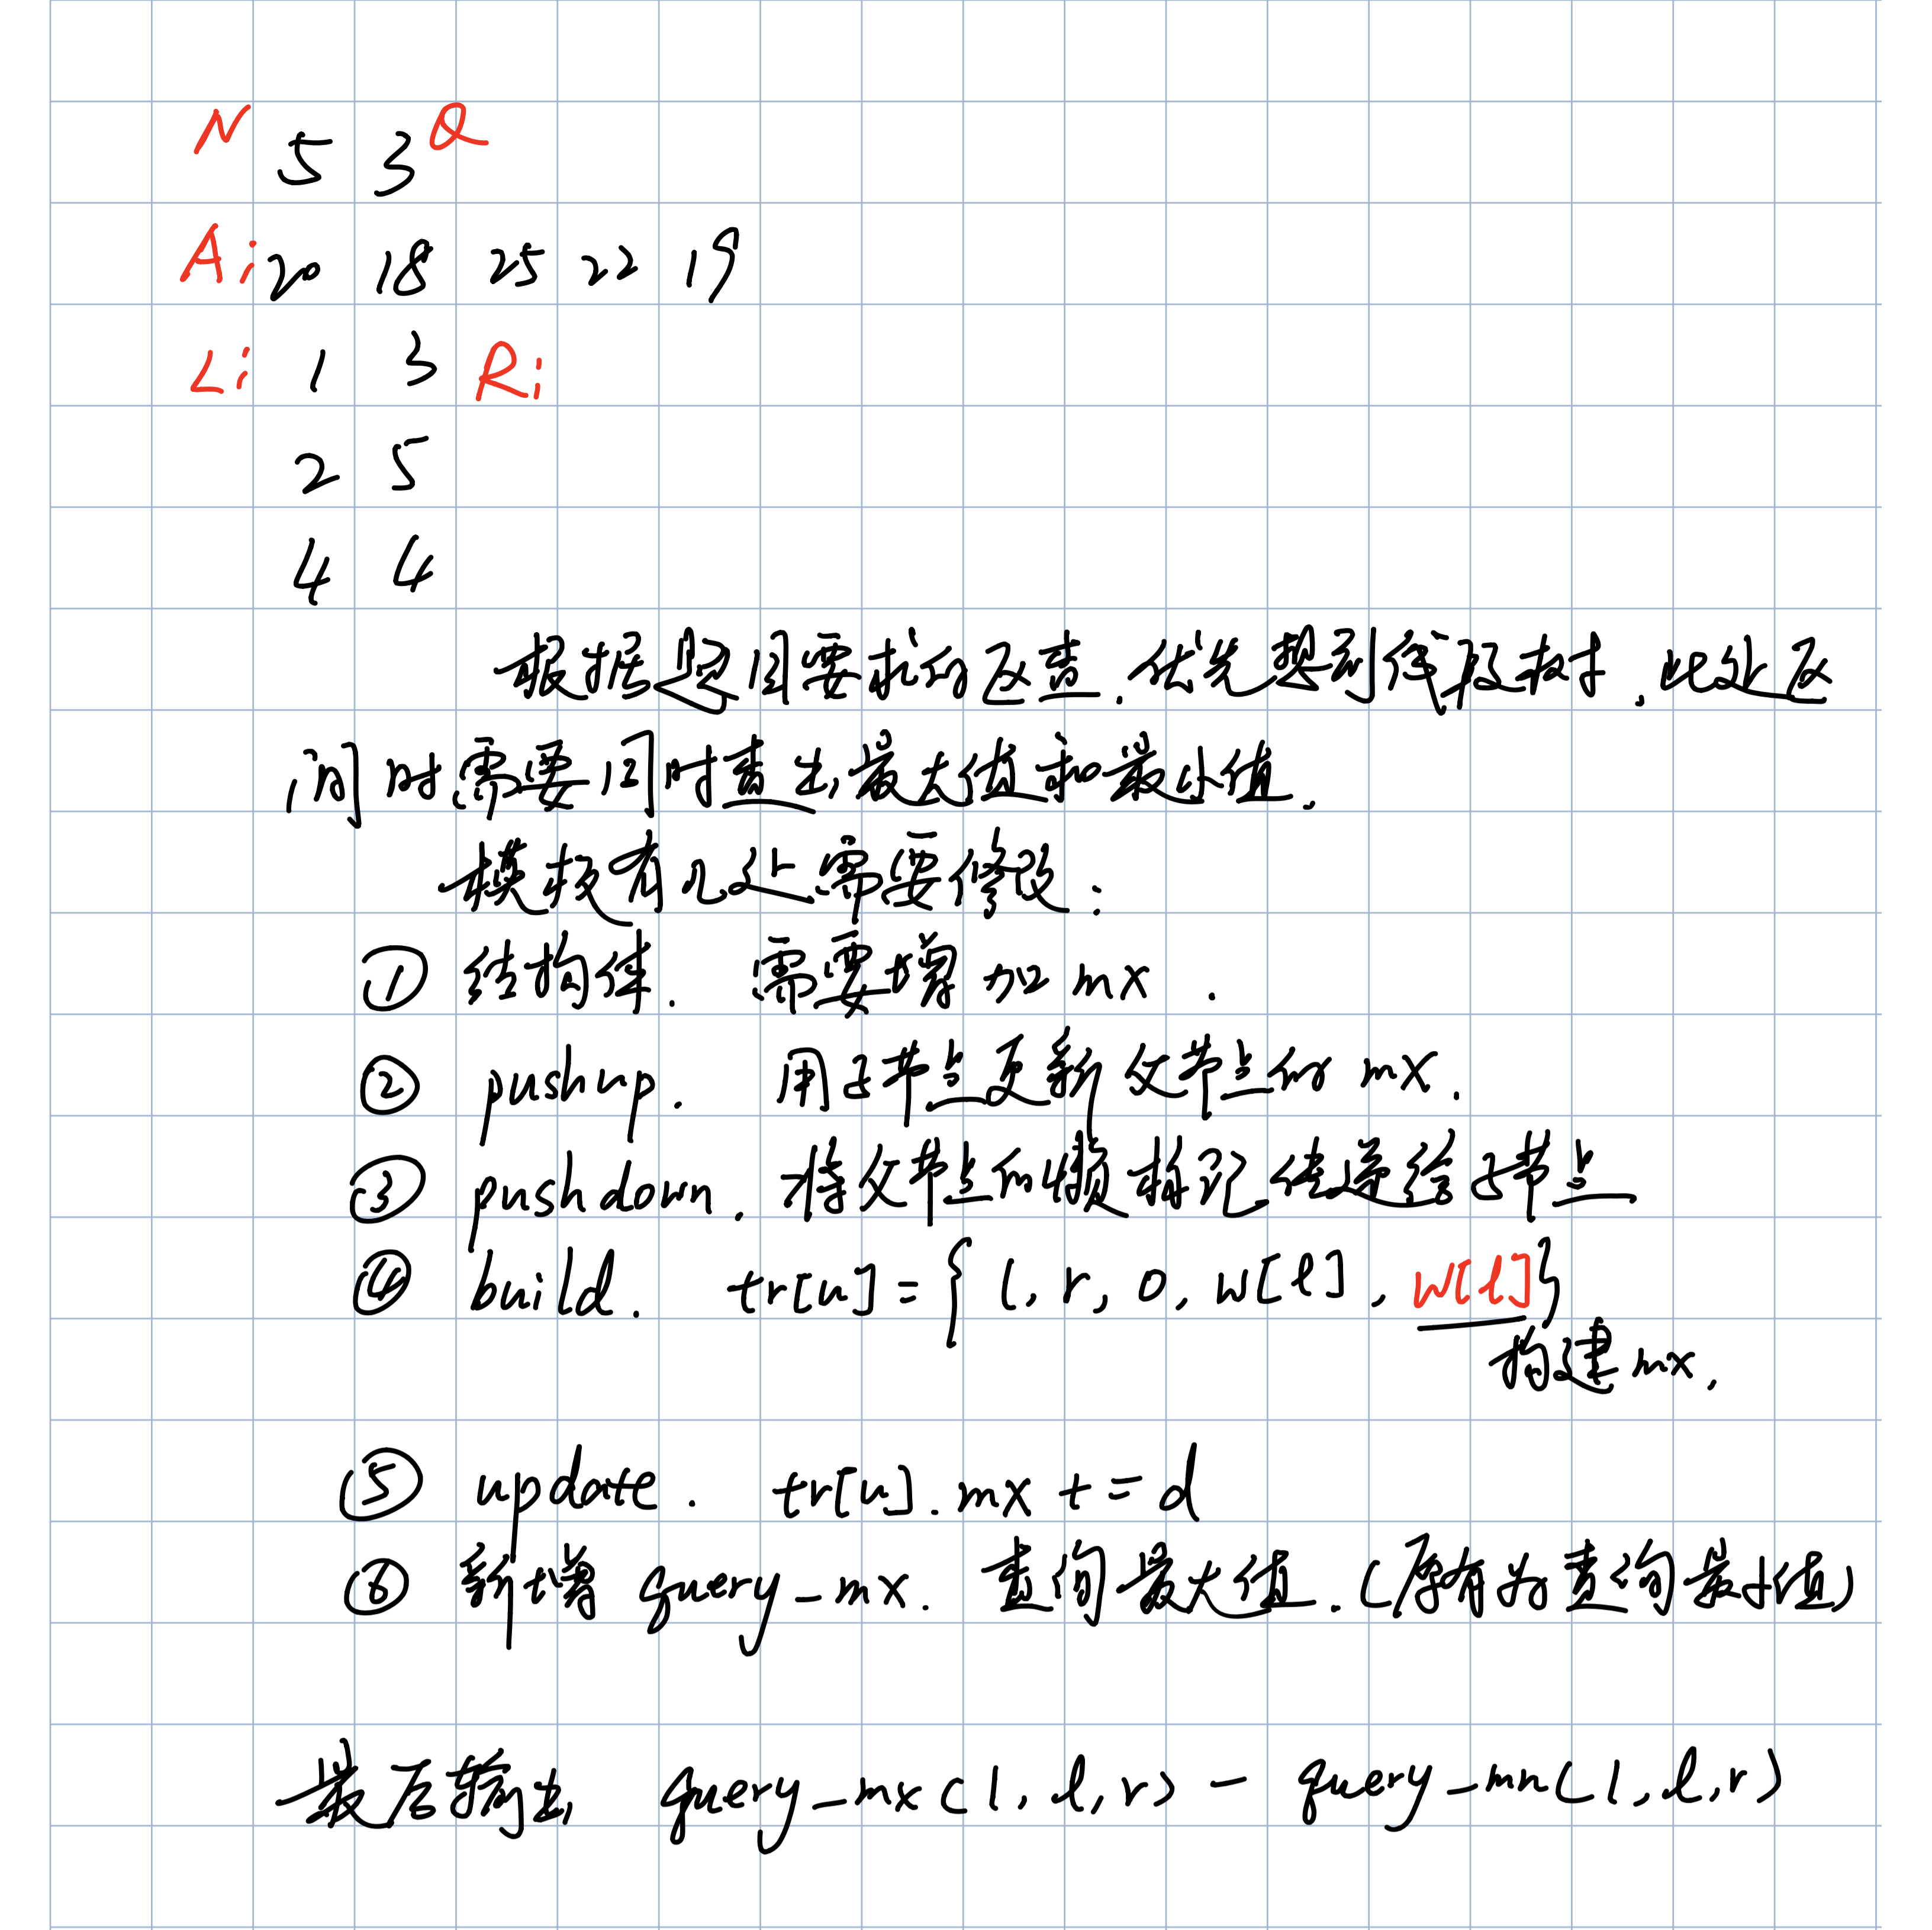 N 5 3 Q
Ai 20 18 25 22 19
Li 1 3 Ri
2 5
4 4
根据题目需求的含意.优先想到线段树.此处区
间内需要同时查找最大值和最小值.
模板有以上需要修改:
① 结构体. 需要增加 mx.
② pushup. 用子节点更新父节点的 mx.
③ pushdown. 将父节点的懒标记传递给子节点
④ build. tr[u]={l,r,0,w[l],w[l]}
构建mx.
⑤ update. tr[u].mx+=d
⑥ 新增 query-mx. 查询最大值.(原有的查询最小值)
最后输出 query-mx(1,l,r)-query-mn(1,l,r)